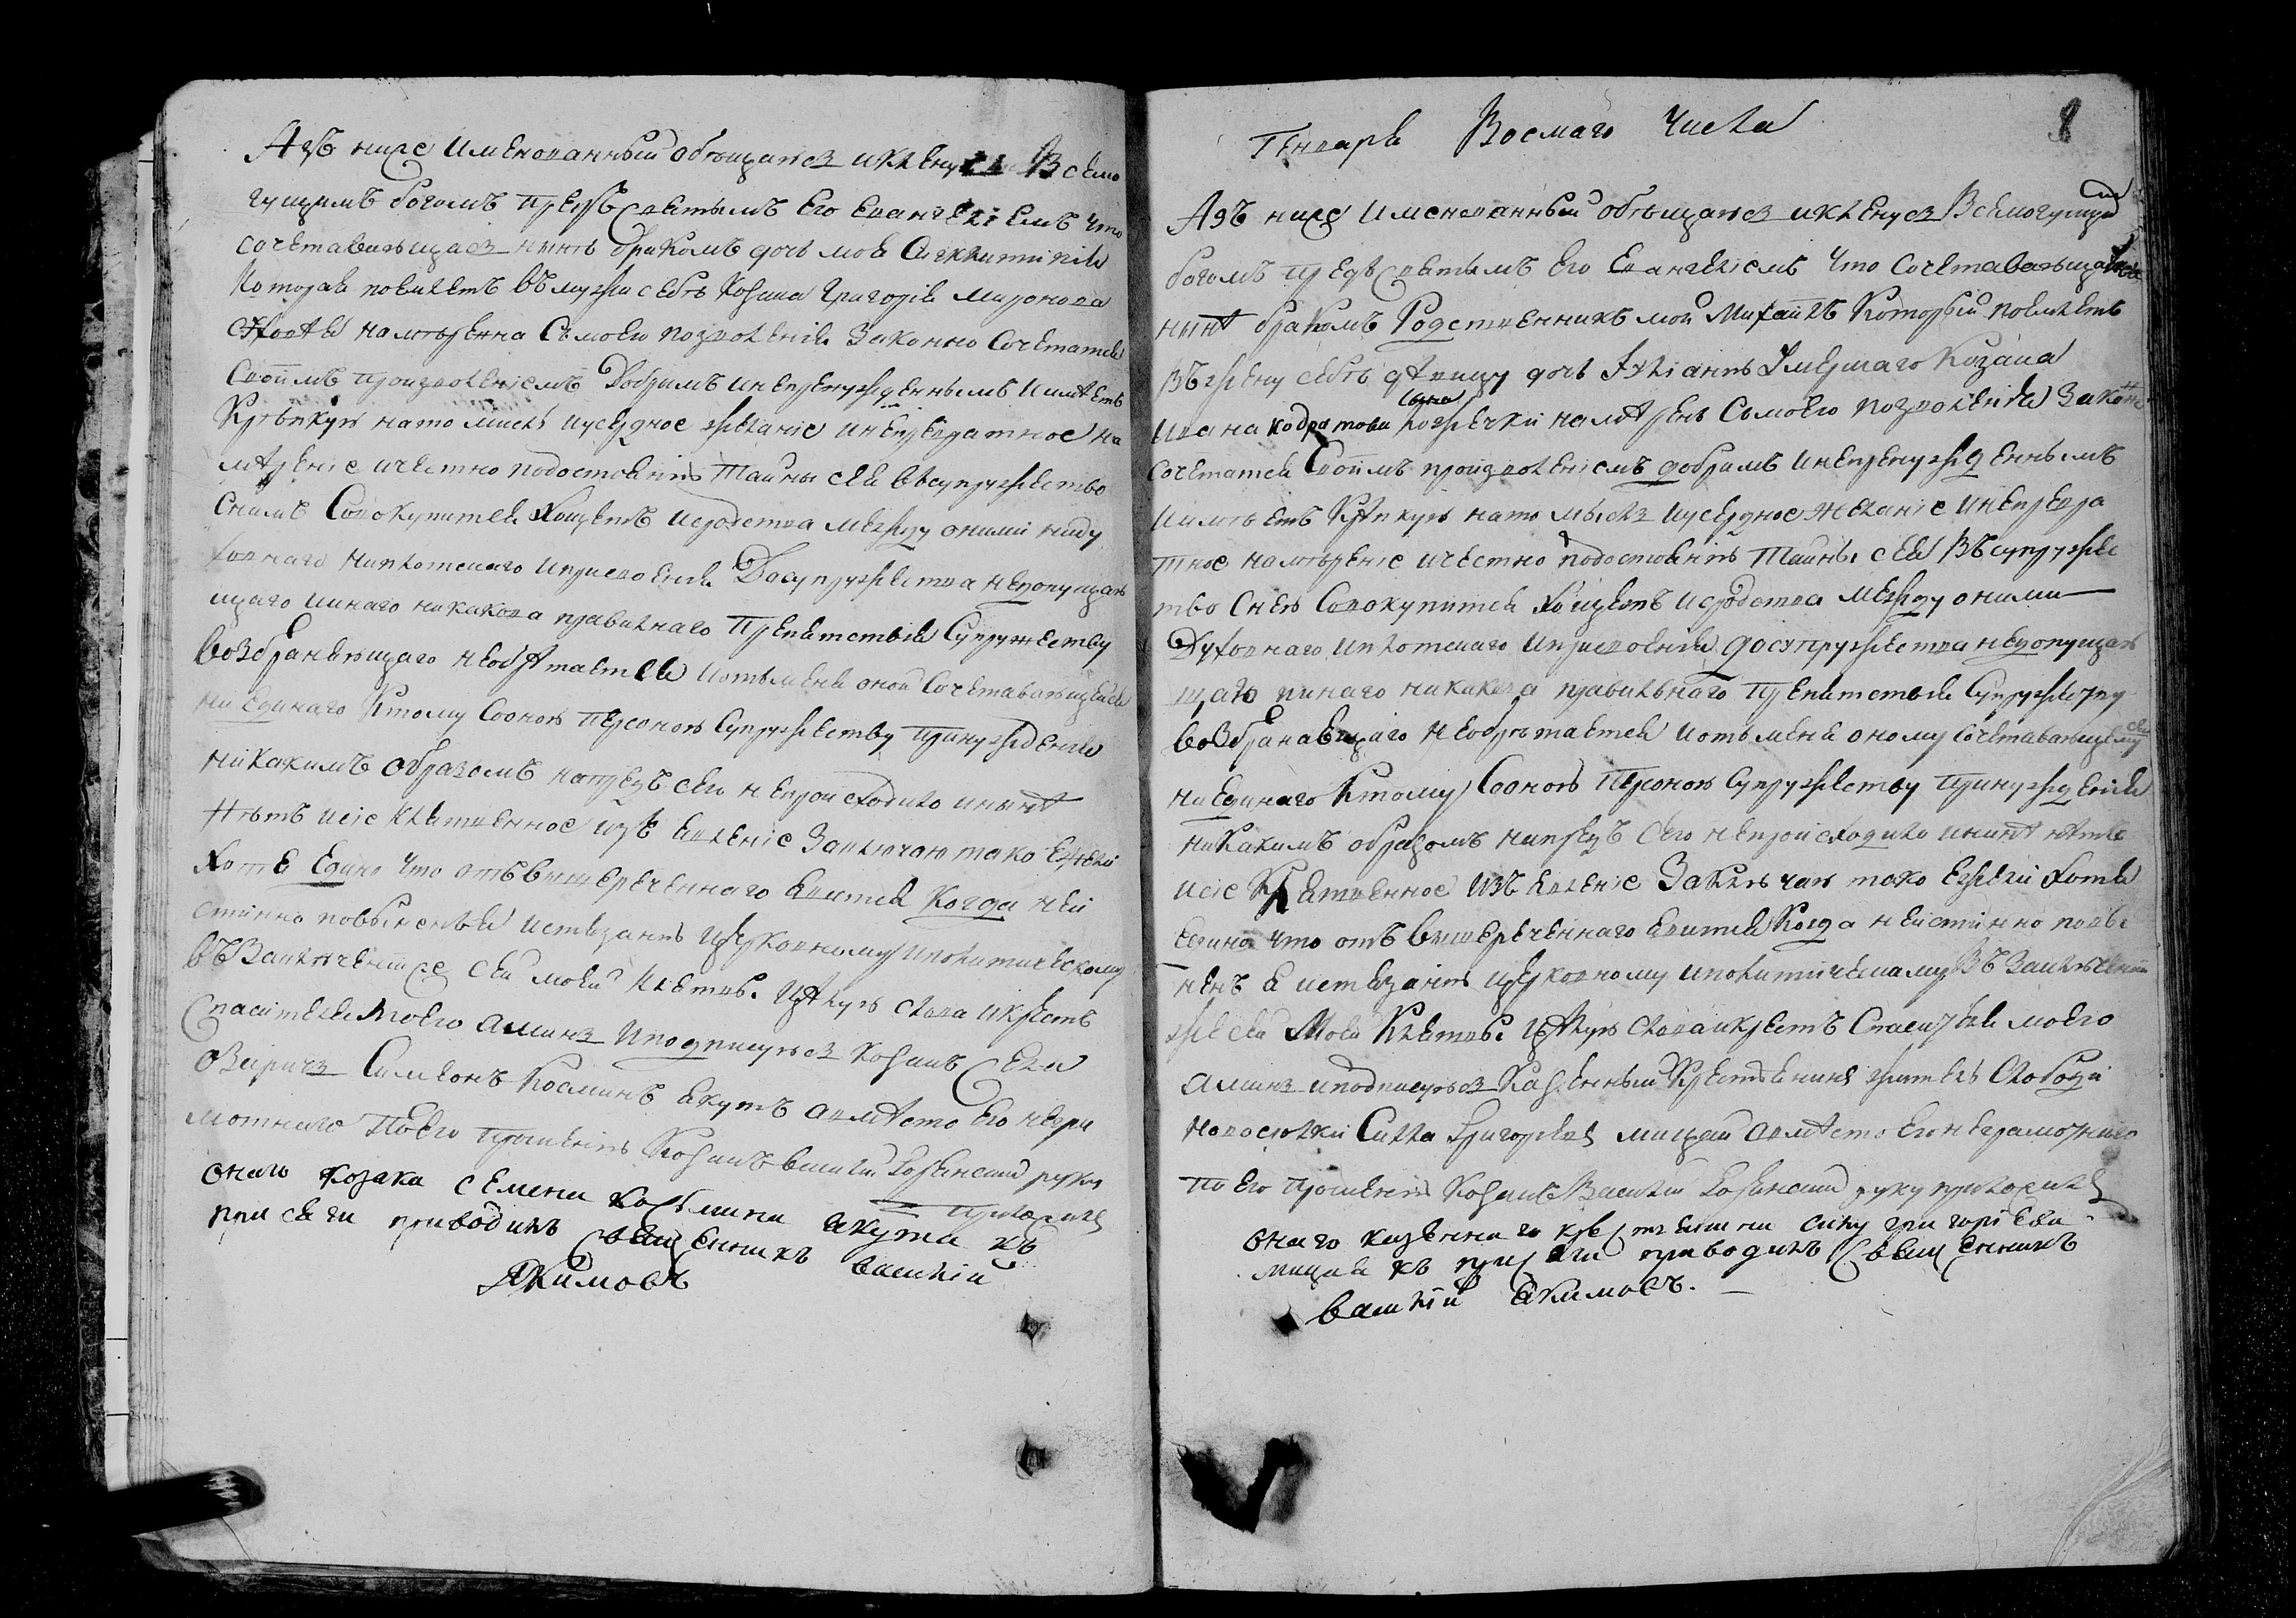 Азъ ниже Именованный обѣщаюсъ и клену ся Всемо
гущимъ богомъ предъ Святымъ Его Евангеліемъ что
сочетавающаясъ нинѣ бракомъ дочь моя
Которая поемлетъ въ мужи себѣ Козака Григорія Миронова
намѣренна съ моего позволенія Законно Сочетатся
Своімъ произволеніемъ Добримъ и непренужденнымъ И имѣетъ
Крѣпкую на то мисль и усердное желаніе и непревратное на
мѣреніе и честно по достоянію Тайны сея въ супружество
Снимъ Совокупится хощетъ и сродства между оними ни ду
ховного ни плотскаго и присвоенія До супружества недопущаю
щаго и инаго никакова правилнаго Препятствія Супружеству
возбраняющаго необрѣтается и отъ мене оной Сочетавающейся
ни единаго Ктому Со оною персоною Супружеству принужденія
никакимъ образомъ напредъ сего непроисходило и нинѣ
Нѣтъ и сіе клятвенное изъявленіе Заключаю тако Ежели
хотя Едино что отъ вишереченнаго явится Когда неи
стинно повыненъ я истязанію церковному и политическому
въ Заключеніі же сея моей клятвы Цѣлую слова и крестъ
Спасителя Моего аминъ И подписуюсъ Козакъ Села
Озѣричъ Симеонъ Косминъ Якутъ а вмѣсто Его негра
мотнаго По Его прошенію Козакъ Василій руку
приложилъ
оного козака семена козьмина якута къ
присяги приводилъ Священникъ василій
Якимовъ
Генваря Восмаго Числа
8
Азъ ниже Именованный обѣщаюсъ и кленусъ Всемогущим
богомъ предъ Святымъ Его Евангеліемъ Что Сочетавающійся
нинѣ бракомъ Родственникъ мой Михаилъ Который поемлетъ
въ жену себѣ дѣвицу дочь Іулианію Умершаго Козака
сына
Ивана кодратова намѣренъ Смоего позволенія Законн
Сочетатся Своімъ произволеніемъ добримъ и непренужденнымъ
И имѣетъ Крѣпкую на то мысль и усердное желаніе и непревра
тное намѣреніе и честно по достоянію Тайны сея Въ супружес
тво Снею Совокупится хощетъ и сродства между оними
Духовнаго и плотскаго и присвоенія до супружества недопущаю
щаго и инаго никакова правильнаго Препятствія Супружеству
возбранявщаго необрѣтается и отъ мене оному Сочетавающемуся
ни Единаго Ктому Со оною персоною Супружеству принужденія
никакимъ образомъ напредъ Сего непроисходило и нинѣ нѣтъ
и сіе Клятвенное изъявленіе Заключаю тако Ежели хотя
Едино что отъ вишереченнаго явится Когда неистинно повы
ненъ я истязанію церковному и политическому Въ Заключеніі
же сея Моея Клятвы Цѣлую слова и крестъ Спасителя моего
аминъ и подписуюсъ Казенный Крестьянинъ житель Слободы
Сила Григорьевъ мицай а вмѣсто Его неграмотнаго
по Его прошенію Козакъ Василій руку приложилъ
оного казенного крестянина силу григоріева
мицая къ присяги приводилъ Священникъ
василій Якимовъ.